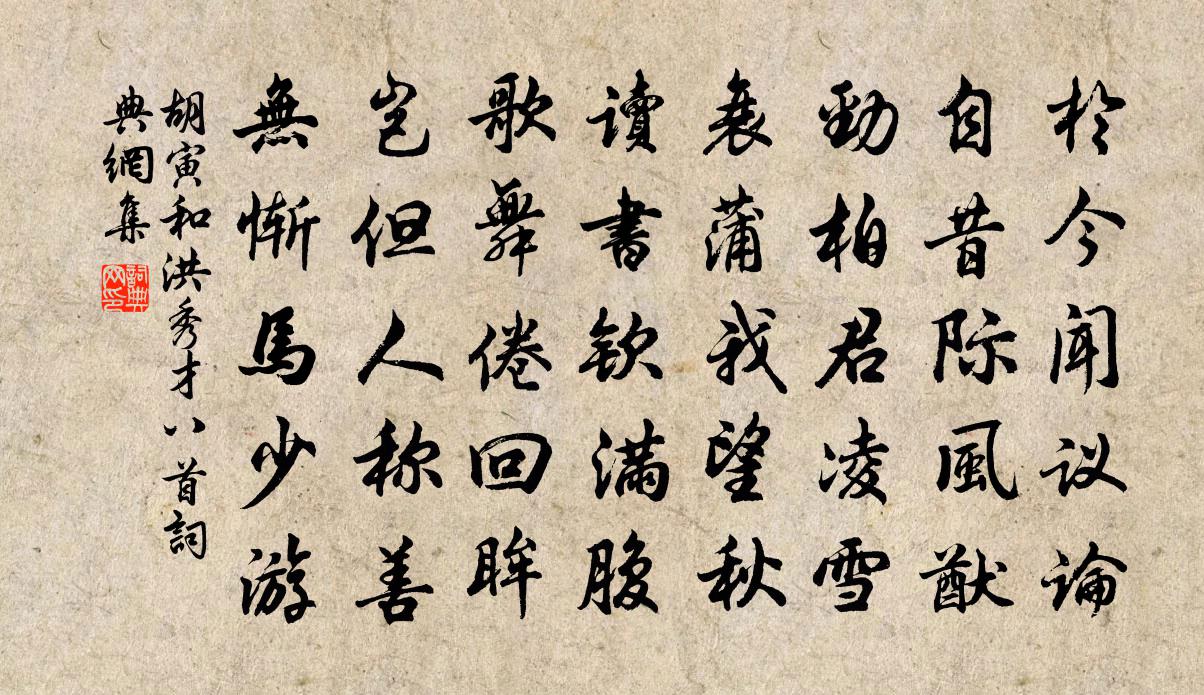 於今闻议论
自昔际風猷
勁柏君凌雪
衰蒲我望秋
讀書欽满腹
歌舞倦回眸
岂但人称善
無惭馬少游
胡寅和洪秀才八首詞
典網集
詞典网印